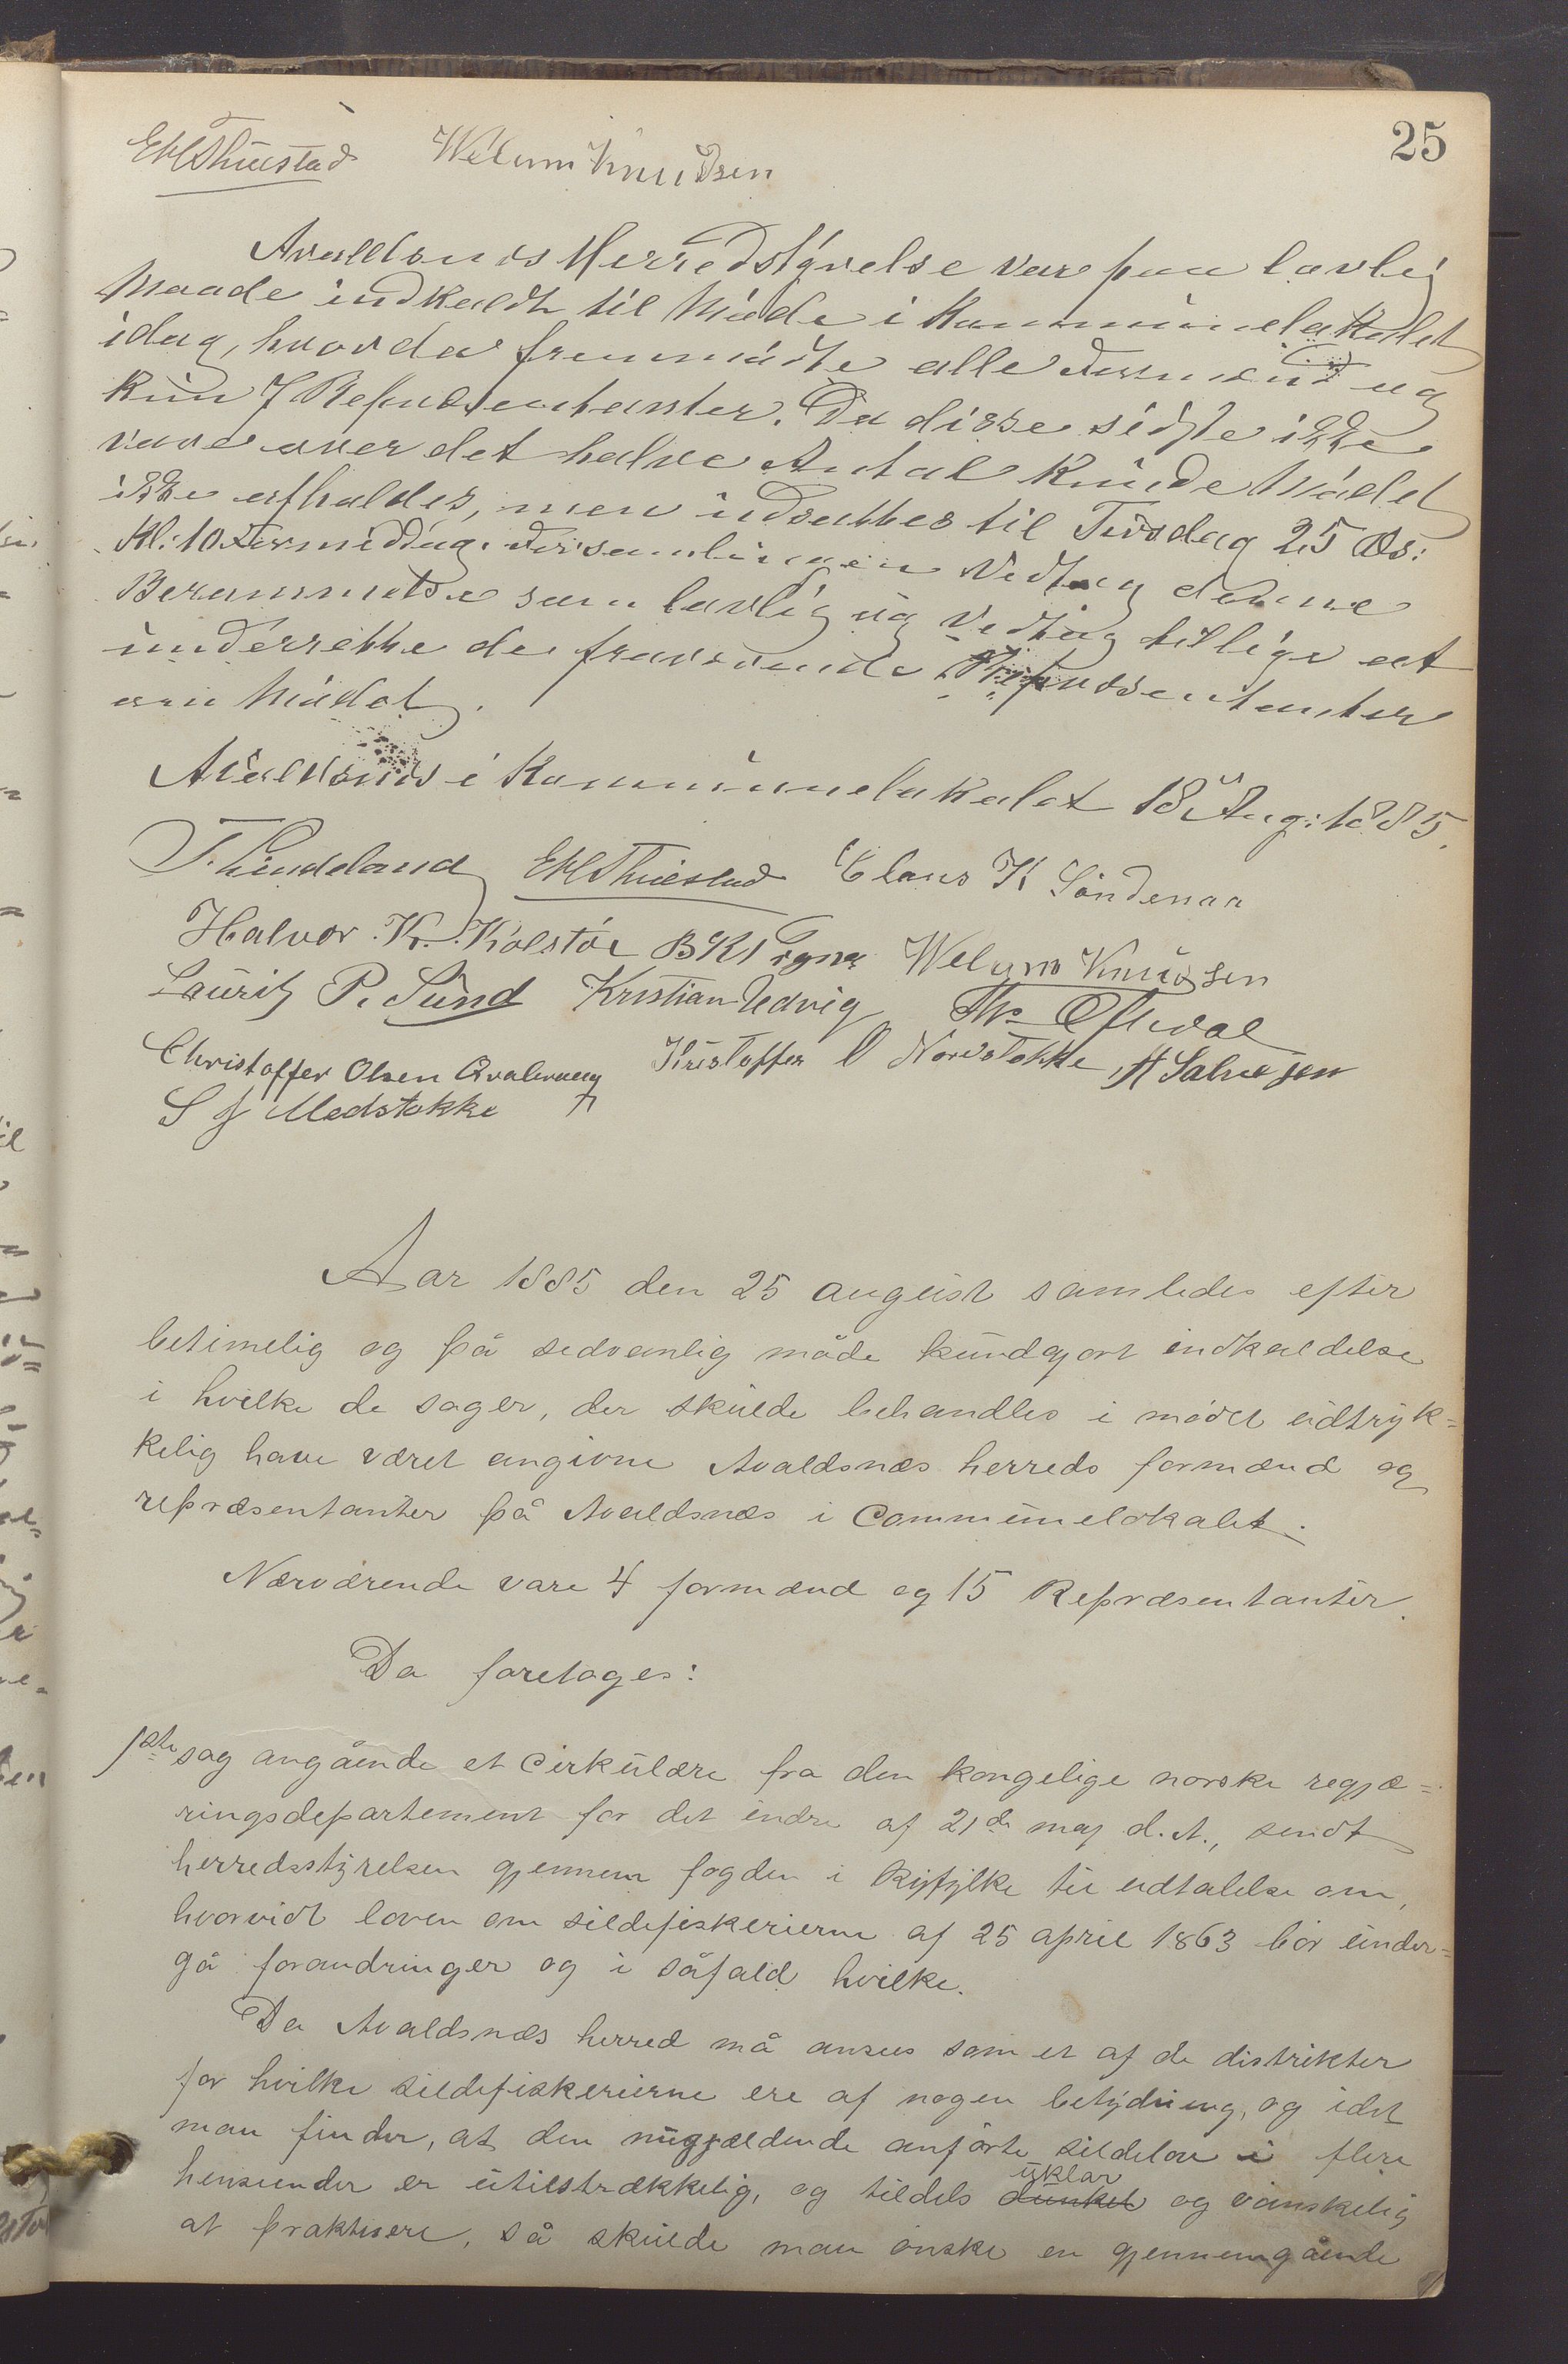 25
Welum Knudsen
Avaldsnes Herredstyrelse var paa lovlig
Maade indkaldt til Möde i Kommunelokalet
idag, hvorda fremmödte alle Formænd og
kun 7 Repræsentanter. Da disse sidste ikke
vare over det halve Antal kunde Mödet
ikke afholdes, men udsættes til Tirsdag 25 ds:
Kl: 10 Formiddag. Forsamlingen vedtog denne
Berammelse som lovlig og vedtog tillige at
underrette de fraværende Repræsentanter
om Mödet.
Avaldsnes i Kommunelokalet 18 Aug: 1885.
T. Lindeland Claus K Söndenaa
Halvor K. Kolstöe Welum Knudsen
Lauritz P. Sund Kristian Vedvig
Christoffer Olsen Kristoffer O Nordstokke
S J Medstokke
Aar 1885 den 25 august samledes efter
betimelig og på sedvanlig måde kundgjort indkaldelse
i hvilke de sager, der skulde behandles i mödet udtryk=
kelig have været angivne Avaldsnæs herreds formænd og
repræsentanter på Avaldsnæs i Communelokalet.
Nærværende vare 4 formænd og 15 Repræsentanter.
Da foretages:
1ste sag angående et Cirkulære fra den kongelige norske regjæ=
ringsdepartement for det indre af 21de maj d. A., sendt
herredsstyrelsen gjennem fogden i Ryfylke til udtalelse om,
hvorvidt loven om sildefiskerierne af 25 april 1863 bör under=
gå forandringer og i såfald hvilke.
Da Avaldsnæs herred må ansees som et af de distrikter
for hvilke sildefiskerierne ere af nogen betydning, og idet
man finder, at den nugjældende anförte sildelov i flere
henseender er utilstrækkelig, og tildels dunkel uklar og vanskelig
at praktisere, så skulde man önske en gjennemgående